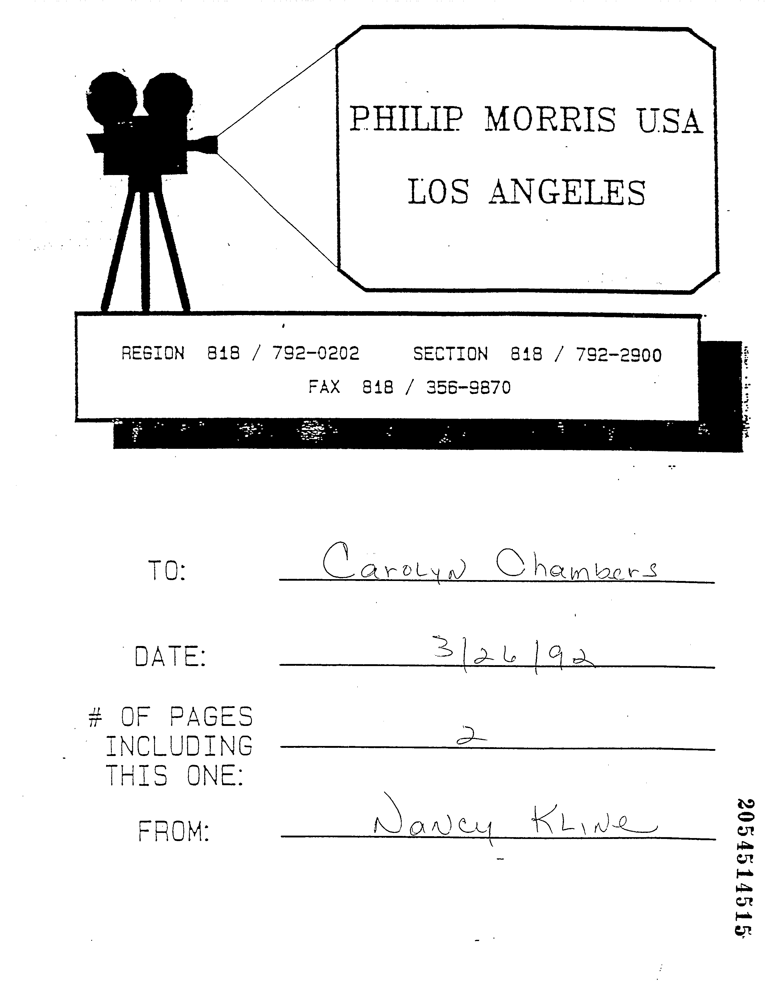 PHILIP MORRIS USA
LOS ANGELES
REGION 818 / 792-0202 SECTION 818 / 792-2900
FAX 818 / 356-9870
TO: Carolyn Chambers
DATE: 3/26/92
# OF PAGES
INCLUDING 2
THIS ONE:
FROM: Nancy Kline
2054514515